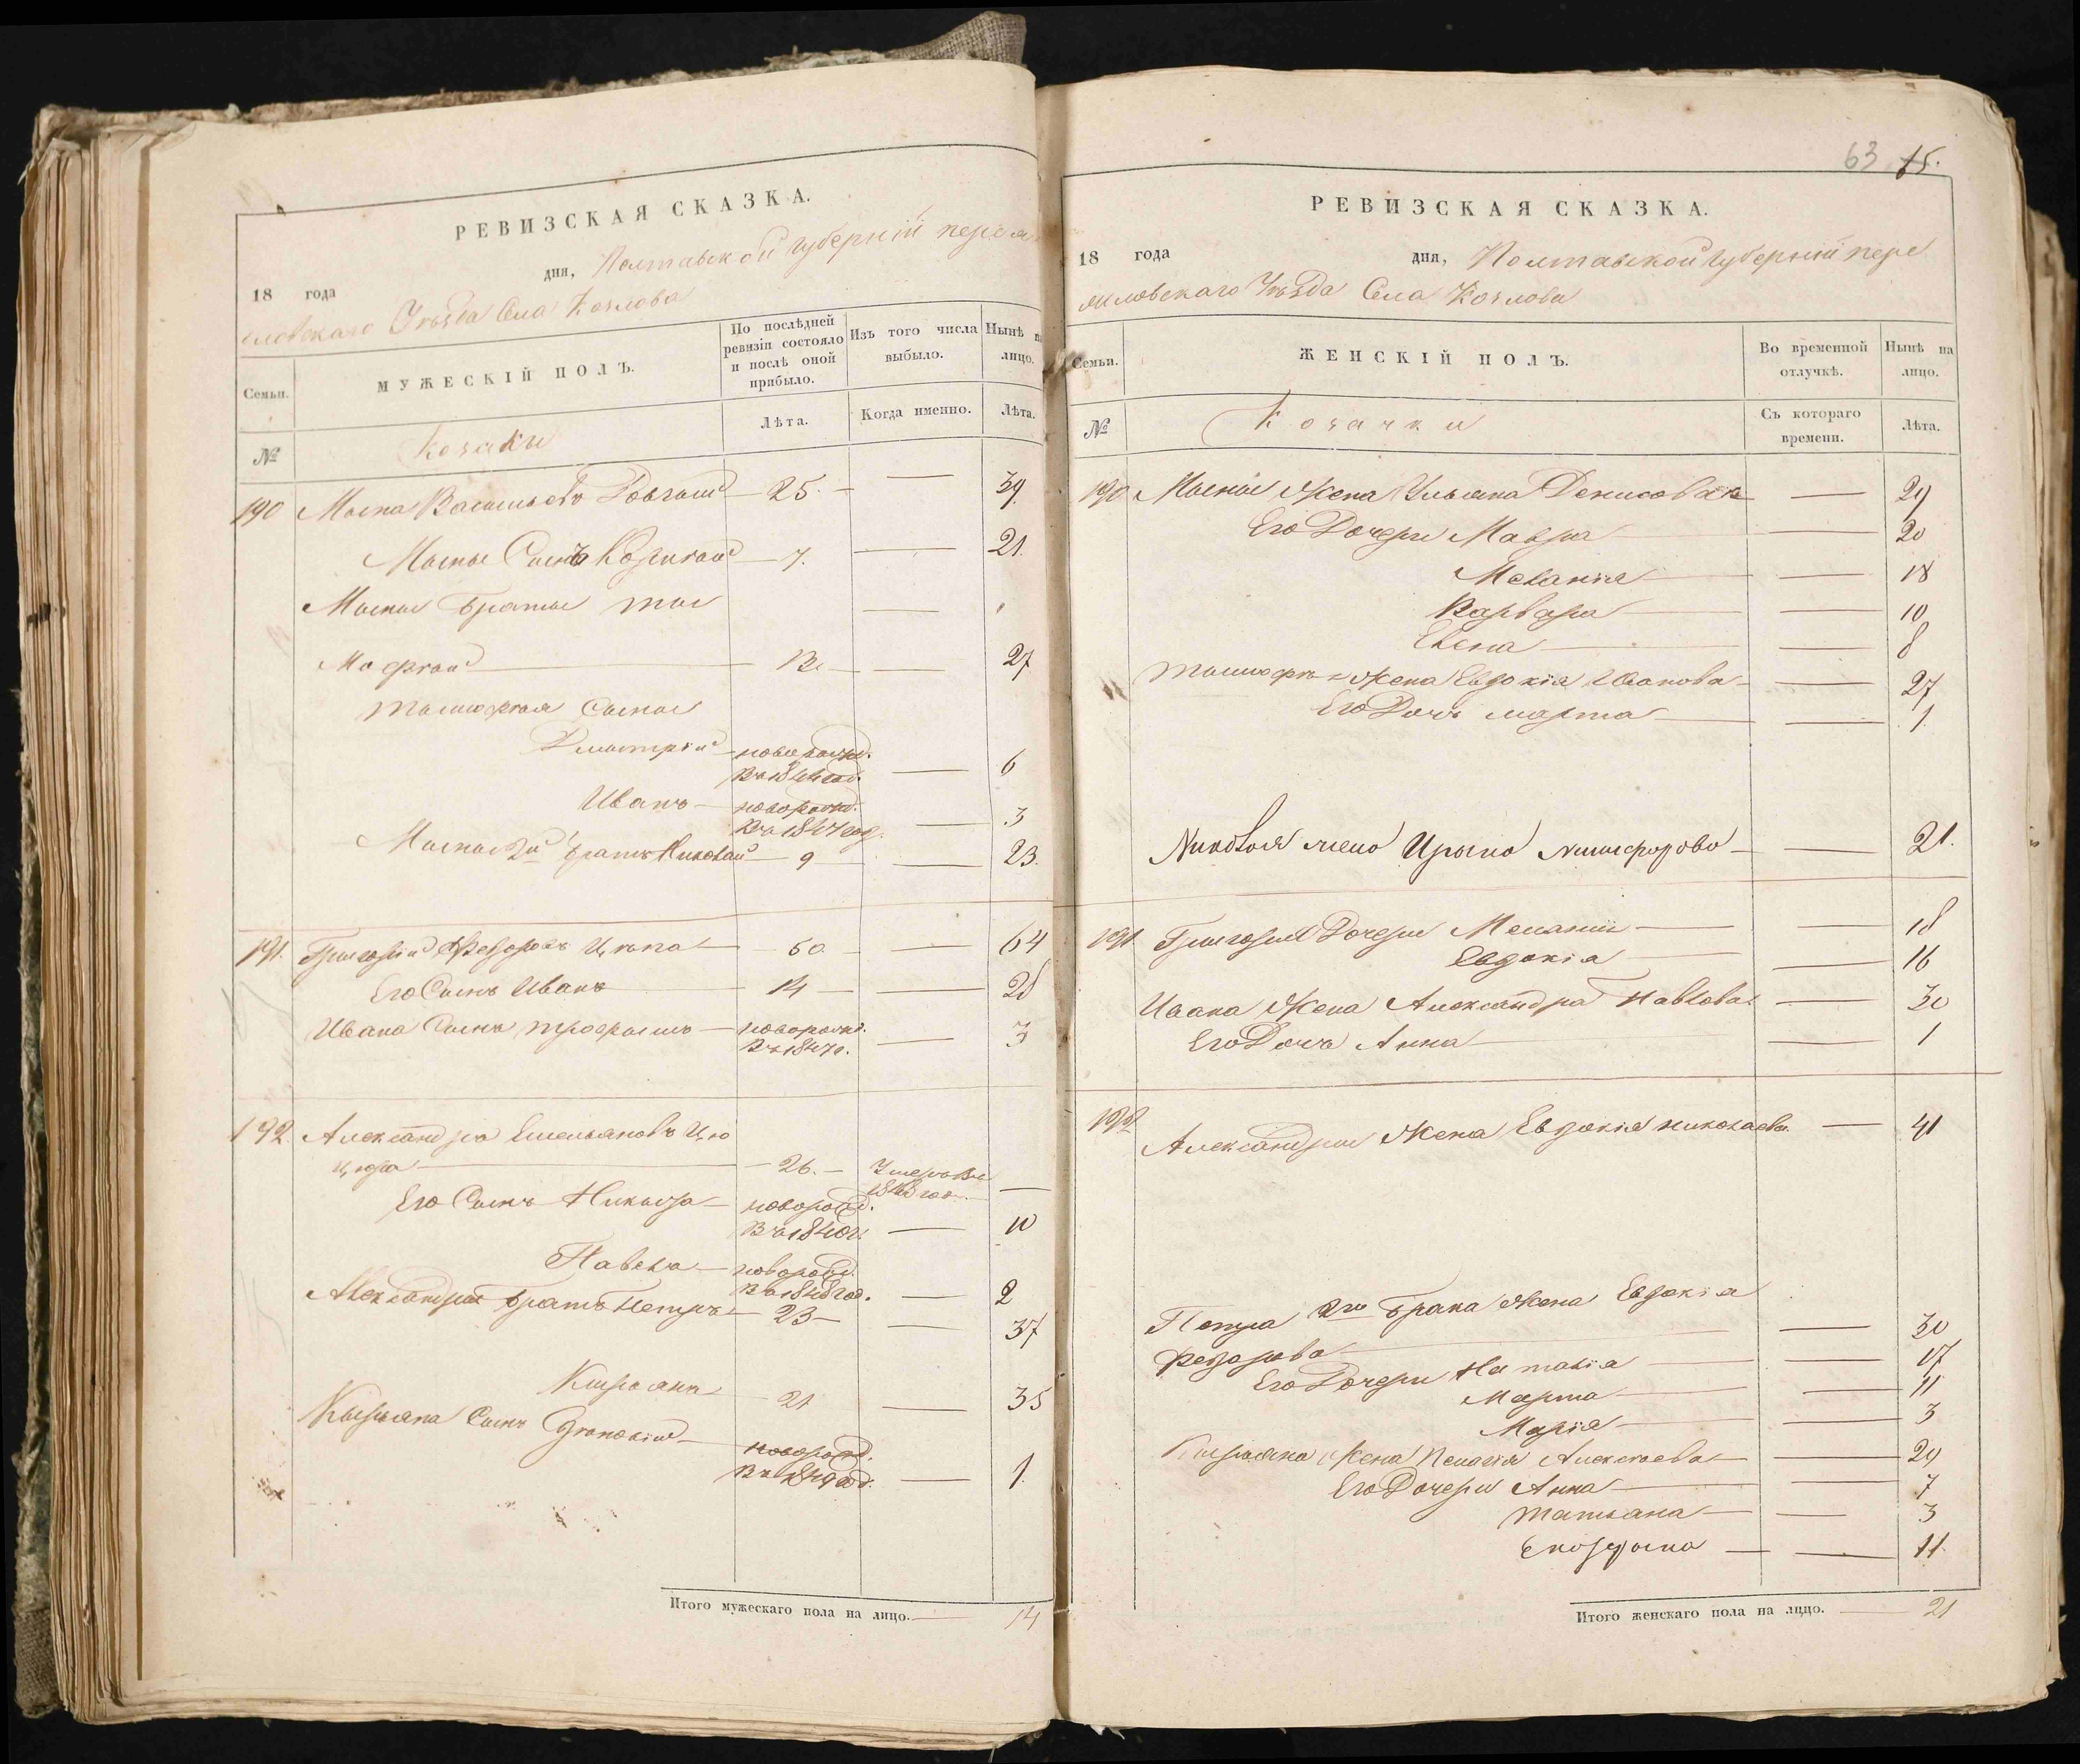 РЕВИЗСКАЯ СКАЗКА.
18 года дня, Полтавской губерніи перея
словскаго Уѣзда Села Козлова
Семьи.
МУЖЕСКІЙ ПОЛЪ.
По послѣдней ревизіи состояло и послѣ оной прибыло.
Изъ того числа выбыло.
Нынѣ на лицо.
№
Козаки
Лѣта.
Когда именно.
Лѣта.
190 Васильевъ 25. — 39.
Сынъ 7. — 21.
братья —
13 — 27
Сыны
Дмитрій новорожд. въ 184 год. — 6
Иванъ новорожд. въ 1847 год. — 3
2й братъ Николай 9 — 23.
191. Григорій Федоровъ Цѣпа 50 — 64
Его Сынъ Иванъ 14 — 28
Ивана Сынъ Трофимъ новорожд. въ 1847г. — 3
192. Александра Емельяновъ Цю
цюра 26. — Умеръ въ 184 год. —
Его Сынъ Никита новорожд. въ 1840г. — 10
Павелъ новорожд. въ 1848 год. — 2
Александра братъ Петръ 23 — 37
Кирьянъ 21 — 35
Кирьяна Сынъ новорожд. въ 1849 год. — 1.
Итого мужескаго пола на лицо. — 14
63 15.
РЕВИЗСКАЯ СКАЗКА.
18 года дня, Полтавской губерніи пере
яславскаго Уѣзда Села Козлова
Семьи.
ЖЕНСКІЙ ПОЛЪ.
Во временной отлучкѣ.
Нынѣ на лицо.
№
Козачки
Съ котораго времени.
Лѣта.
190 Жена Ульяна Денисова — 29
Его Дочери Мавра — 20
Меланія — 18
Варвара — 10
Елена — 8
Жена Евдокія Иванова — 27
Его Дочь марта — 1.
Николая жена Ирына никифорова — 21.
191 Григорія Дочери Меланія — 18
Евдокія — 16
Ивана Жена Александра Павлова — 30
Его Дочь Анна — 1
192 Александра Жена Евдокія николаева — 41
Петра 2го брака Жена Евдокія
федорова — 30
Его Дочери Наталія — 17
Марта — 11
Марія — 3
Кирьяна Жена Пелагія Алексѣева — 29
Его Дочери Анна — 7
Татьяна — 3
— 11.
Итого женскаго пола на лицо. — 21